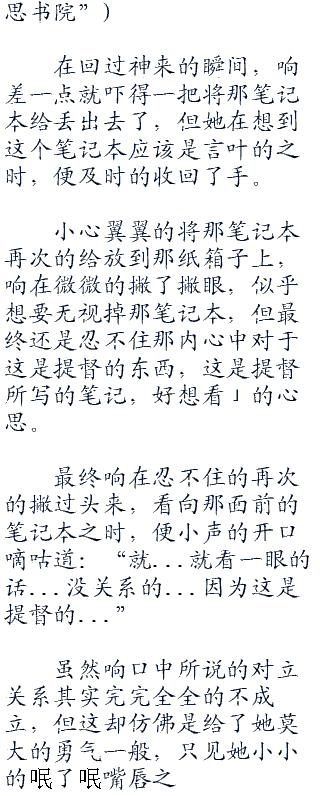 思书院”）
在回过神来的瞬间，响
差一点就吓得一把将那笔记
本给丢出去了，但她在想到
这个笔记本应该是言叶的之
时，便及时的收回了手。
小心翼翼的将那笔记本
再次的给放到那纸箱子上，
响在微微的撇了撇眼，似乎
想要无视掉那笔记本，但最
终还是忍不住那内心中对于
这是提督的东西，这是提督
所写的笔记，好想看」的心
思。
最终响在忍不住的再次
的撇过头来，看向那面前的
笔记本之时，便小声的开口
嘀咕道：“就...就看一眼的
话...没关系的...因为这是
提督的...”
虽然响口中所说的对立
关系其实完完全全的不成
立，但这却仿佛是给了她莫
大的勇气一般，只见她小小
的呡了呡嘴唇之